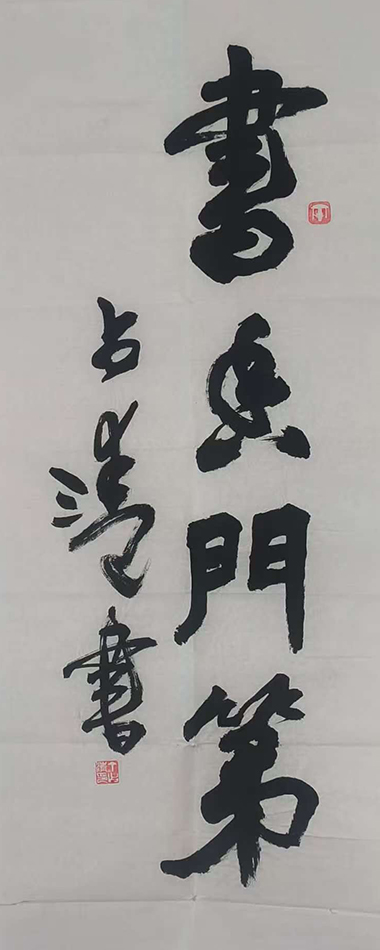 書香門第
占清書